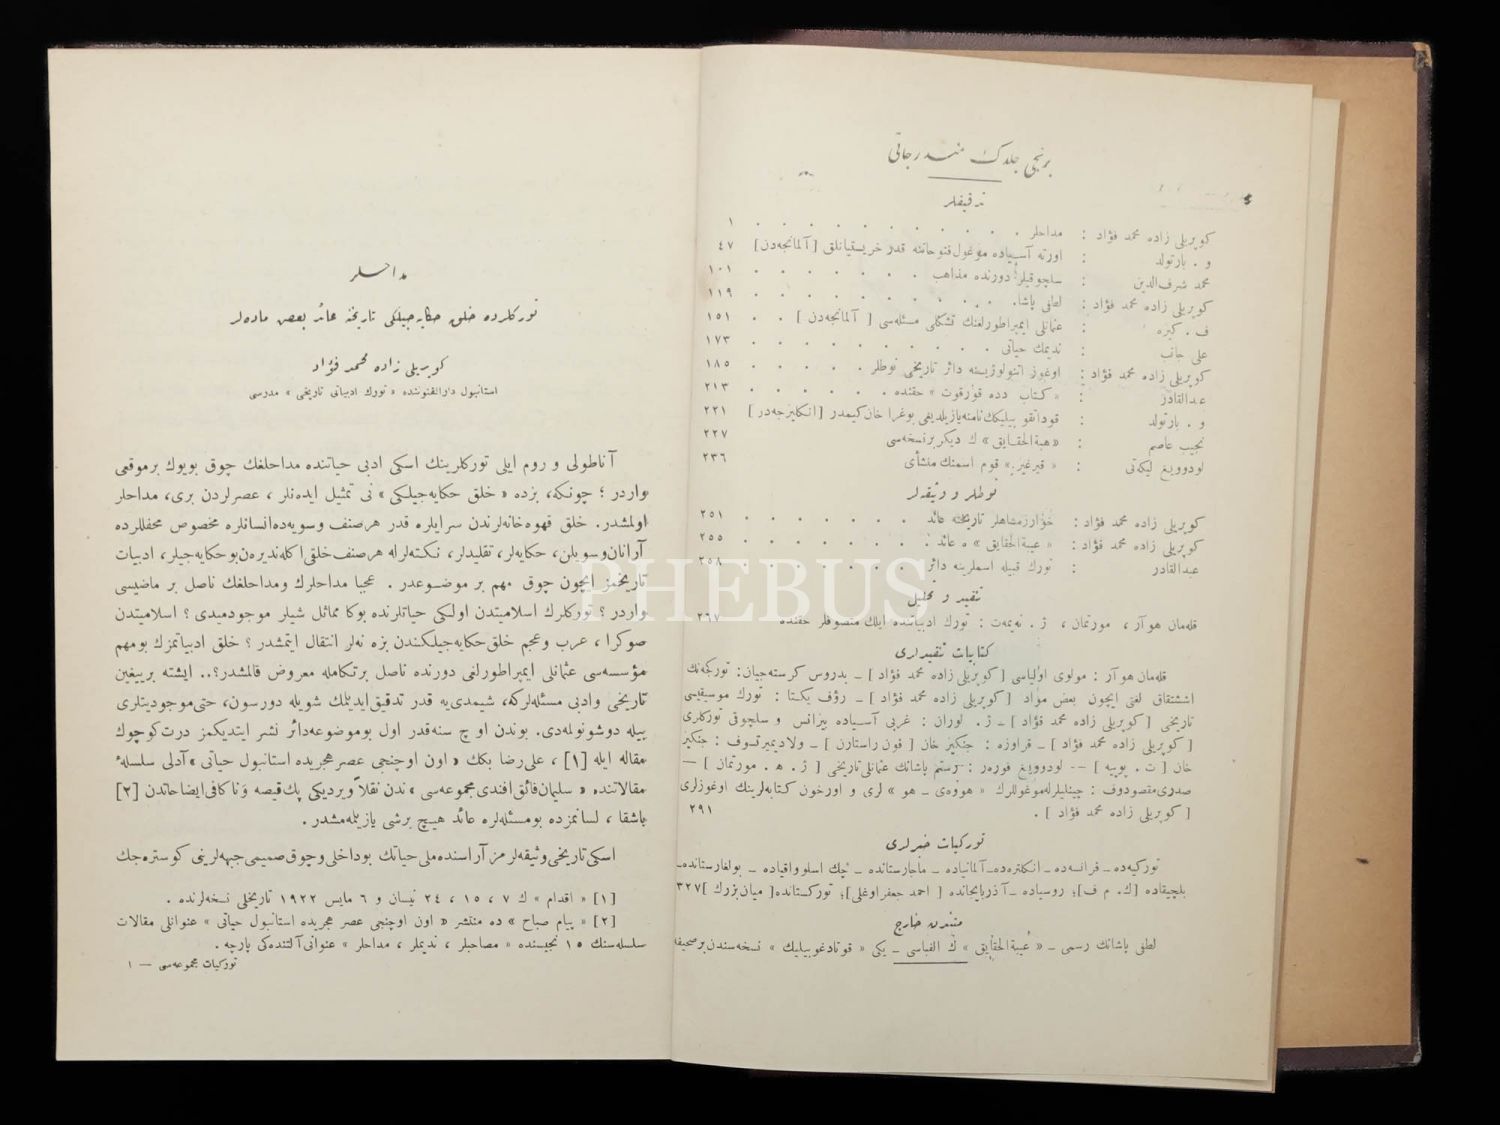 برنجی جلدك مندرجاتی
تدقیقلر
كوپریلی زاده محمد فؤاد : مداحلر . . . . . . . . . . ١
و . بارتولد : اورته آسیاده موغول فتوحاتنه قدر خریستیانلق [ آلمانجه‌دن ] ٤٧
محمد شرف‌الدین : سلجوقیلر دورنده مذاهب . . . . . . . ١٠١
كوپریلی زاده محمد فؤاد : لطفی پاشا . . . . . . . . . . ١١٩
ف . كیزه : عثمانلی ایمپراطورلغنك تشكلی مسئله‌سی [ آلمانجه‌دن ] . . ١٥١
علی جانب : ندیمك حیاتی . . . . . . . . . . ١٧٣
كوپریلی زاده محمد فؤاد : اوغوز اتنولوژیسنه دائر تاریخی نوطلر . . . . . ١٨٥
عبدالقادر : « كتاب دده قورقوت » حقنده . . . . . . ٢١٣
و . بارتولد : قوداتقو بیلیكك نامنه یازیلدیغی بوغرا خان كیمدر [ انكلیزجه‌در ] ٢٢١
نجیب عاصم : « هبة الحقایق » ك دیكر برنسخه‌سی ٢٢٧
لودوویغ لیكه‌تی : « قیرغیز » قوم اسمنك منشأی ٢٣٦
نوطلر و وثیقه‌لر
كوپریلی زاده محمد فؤاد : خوارزمشاهلر تاریخنه عائد . . . . . . . ٢٥١
كوپریلی زاده محمد فؤاد : « عیبة الحقایق » ه عائد . . . . . . . . ٢٥٥
عبدالقادر : تورك قبیله اسملرینه دائر . . . . . . . ٢٥٨
تنقید و تحلیل
قله‌مان هوآر ، مورتمان ، ژ . نه‌یمه‌ت : تورك ادبیاتنده ایلك متصوفلر حقنده ٢٦٧
كتابیات تنقیدلری
قله‌مان هوآر : مولوی اولیاسی [ كوپریلی زاده محمد فؤاد ] ــ بدروس كرسته‌جیان : توركجه‌نك
اشتقاق لغتی ایچون بعض مواد [ كوپریلی زاده محمد فؤاد ] ــ رؤف یكتا : تورك موسیقیسی
تاریخی [ كوپریلی زاده محمد فؤاد ] ــ ژ . لوران : غربی آسیاده بیزانس و سلچوقی توركلری
[ كوپریلی زاده محمد فؤاد ] ــ قراوزه : جنكیز خان [ فون راستارن ] ــ ولادیمیرتسوف : جنكیز
خان [ ت . یوییه ] -- لودوویغ فورهر : رستم پاشانك عثمانلی تاریخی [ ژ . ه . مورتمان ] —
صدری مقصودوف : چینلیلرله موغوللرك « هووه‌ی ــ هو » لری و اورخون كتابه‌لرینك اوغوزلری
[ كوپریلی زاده محمد فؤاد ] . ٢٩١
توركیات خبرلری
توركیه‌ده ــ فرانسه‌ده ــ انكلتره‌ده ــ آلمانیاده ــ ماجارستانده ــ چك اسلوواقیاده ــ بولغارستانده ــ
بلچیقاده [ ك . م ف ] ؛ روسیاده ــ آذربایجانده [ احمد جعفر اوغلی ] ؛ توركستانده [ میان بزرك ] ٣٢٧
متندن خارج
لطفی پاشانك رسمی ــ « عیبة الحقایق » ك الفباسی ــ یكی « قوتادغو بیلیك » نسخه‌سندن برصحیفه
مداحلر
توركلرده خلق حكایه‌جیلكی تاریخنه عائد بعض ماده‌لر
كوپریلی زاده محمد فؤاد
استانبول دارالفنوننده « تورك ادبیاتی تاریخی » مدرسی
آناطولی و روم ایلی توركلرینك اسكی ادبی حیاتنده مداحلغك چوق بویوك برموقعی
واردر ؛ چونكه، بزده « خلق حكایه‌جیلكی » نی تمثیل ایده‌نلر ، عصرلردن بری، مداحلر
اولمشدر. خلق قهوه‌خانه‌لرندن سرایلره قدر هرصنف وسویه‌ده انسانلره مخصوص محفللرده
آرانان وسویلن، حكایه‌لر، تقلیدلر، نكته‌لرله هرصنف خلقی اكله‌ندیره‌ن بوحكایه‌جیلر، ادبیات
تاریخمز ایچون چوق مهم بر موضوعدر . عجبا مداحلرك ومداحلغك ناصل بر ماضیسی
واردر ؟ توركلرك اسلامیتدن اولكی حیاتلرنده بوكا مماثل شیلر موجودمیدی ؟ اسلامیتدن
صوكرا ، عرب وعجم خلق حكایه‌جیلكندن بزه نه‌لر انتقال ایتمشدر ؟ خلق ادبیاتمزك بومهم
مؤسسه‌سی عثمانلی ایمپراطورلغی دورنده ناصل برتكامله معروض قالمشدر؟.. ایشته بر‌ییغین
تاریخی وادبی مسئله‌لركه، شیمدی‌یه قدر تدقیق ایدیلمك شویله دورسون، حتی موجودیتلری
بیله دوشونولمه‌دی. بوندن اوچ سنه‌قدر اول بوموضوعه‌دائر نشر ایتدیكمز درت كوچوك
مقاله ایله [١] ، علی رضا بكك « اون اوچنجی عصر هجریده استانبول حیاتی » آدلی سلسلهٔ
مقالاتنده « سلیمان فائق افندی مجموعه‌سی » ندن نقلاً ویردیكی پك قیصه وناكافی ایضاحاتدن [٢]
باشقا ، لسانمزده بومسئله‌لره عائد هیچ برشی یازیلمه‌مشدر .
اسكی تاریخی وثیقه‌لرمز آراسنده ملی حیاتك بو داخلی وچوق صمیمی جبهه‌لرینی كوستره‌جك
[١] « اقدام » ك ٧ ، ١٥ ، ٢٤ نیسان و ٦ مایس ١٩٢٢ تاریخلی نسخه‌لرنده .
[٢] « پیام صباح » ده منتشر « اون اوچنجی عصر هجریده استانبول حیاتی » عنوانلی مقالات
سلسله‌سنك ١٥ نجیسنده « مصاحبلر ، ندیملر ، مداحلر » عنوانی آلتنده‌كی پارچه .
توركیات مجموعه‌سی — ١
PHEBUS